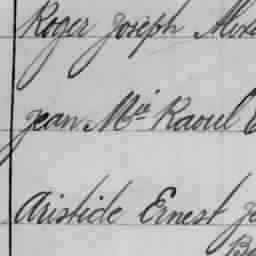 Roger Joseph
Jean Mie Raoul
Aristide Ernest